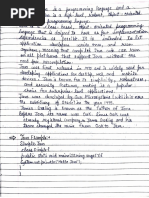 Java is a programming language and a
Java is a high level, robust, object-oriented
and secure programming language.
Java is a class based, object oriented programming
language that is designed to have as few implementation
dependencies as possible. It is intended to let
application developers write once, and run
anywhere. Meaning that compiled Java code can run
on all platforms that support Java without the
need to recompile.
Java was first released in 1995 and is widely used for
developing applications for desktop, web, and mobile
devices. Java is known for its simplicity, robustness,
and security features, making it a popular choice
for enterprise level applications.
Java was developed by Sun Microsystems (which is now the
subsidiary of Oracle) in the year 1995.
James Gosling is known as the father of Java.
Before Java, its name was Oak. Since Oak was
already registered company so James Gosling and his
team changed the name from Oak to Java.
Java Example
Simple.java
class Simple {
public static void main(String args[]){
System.out.println("Hello Java");
}
}